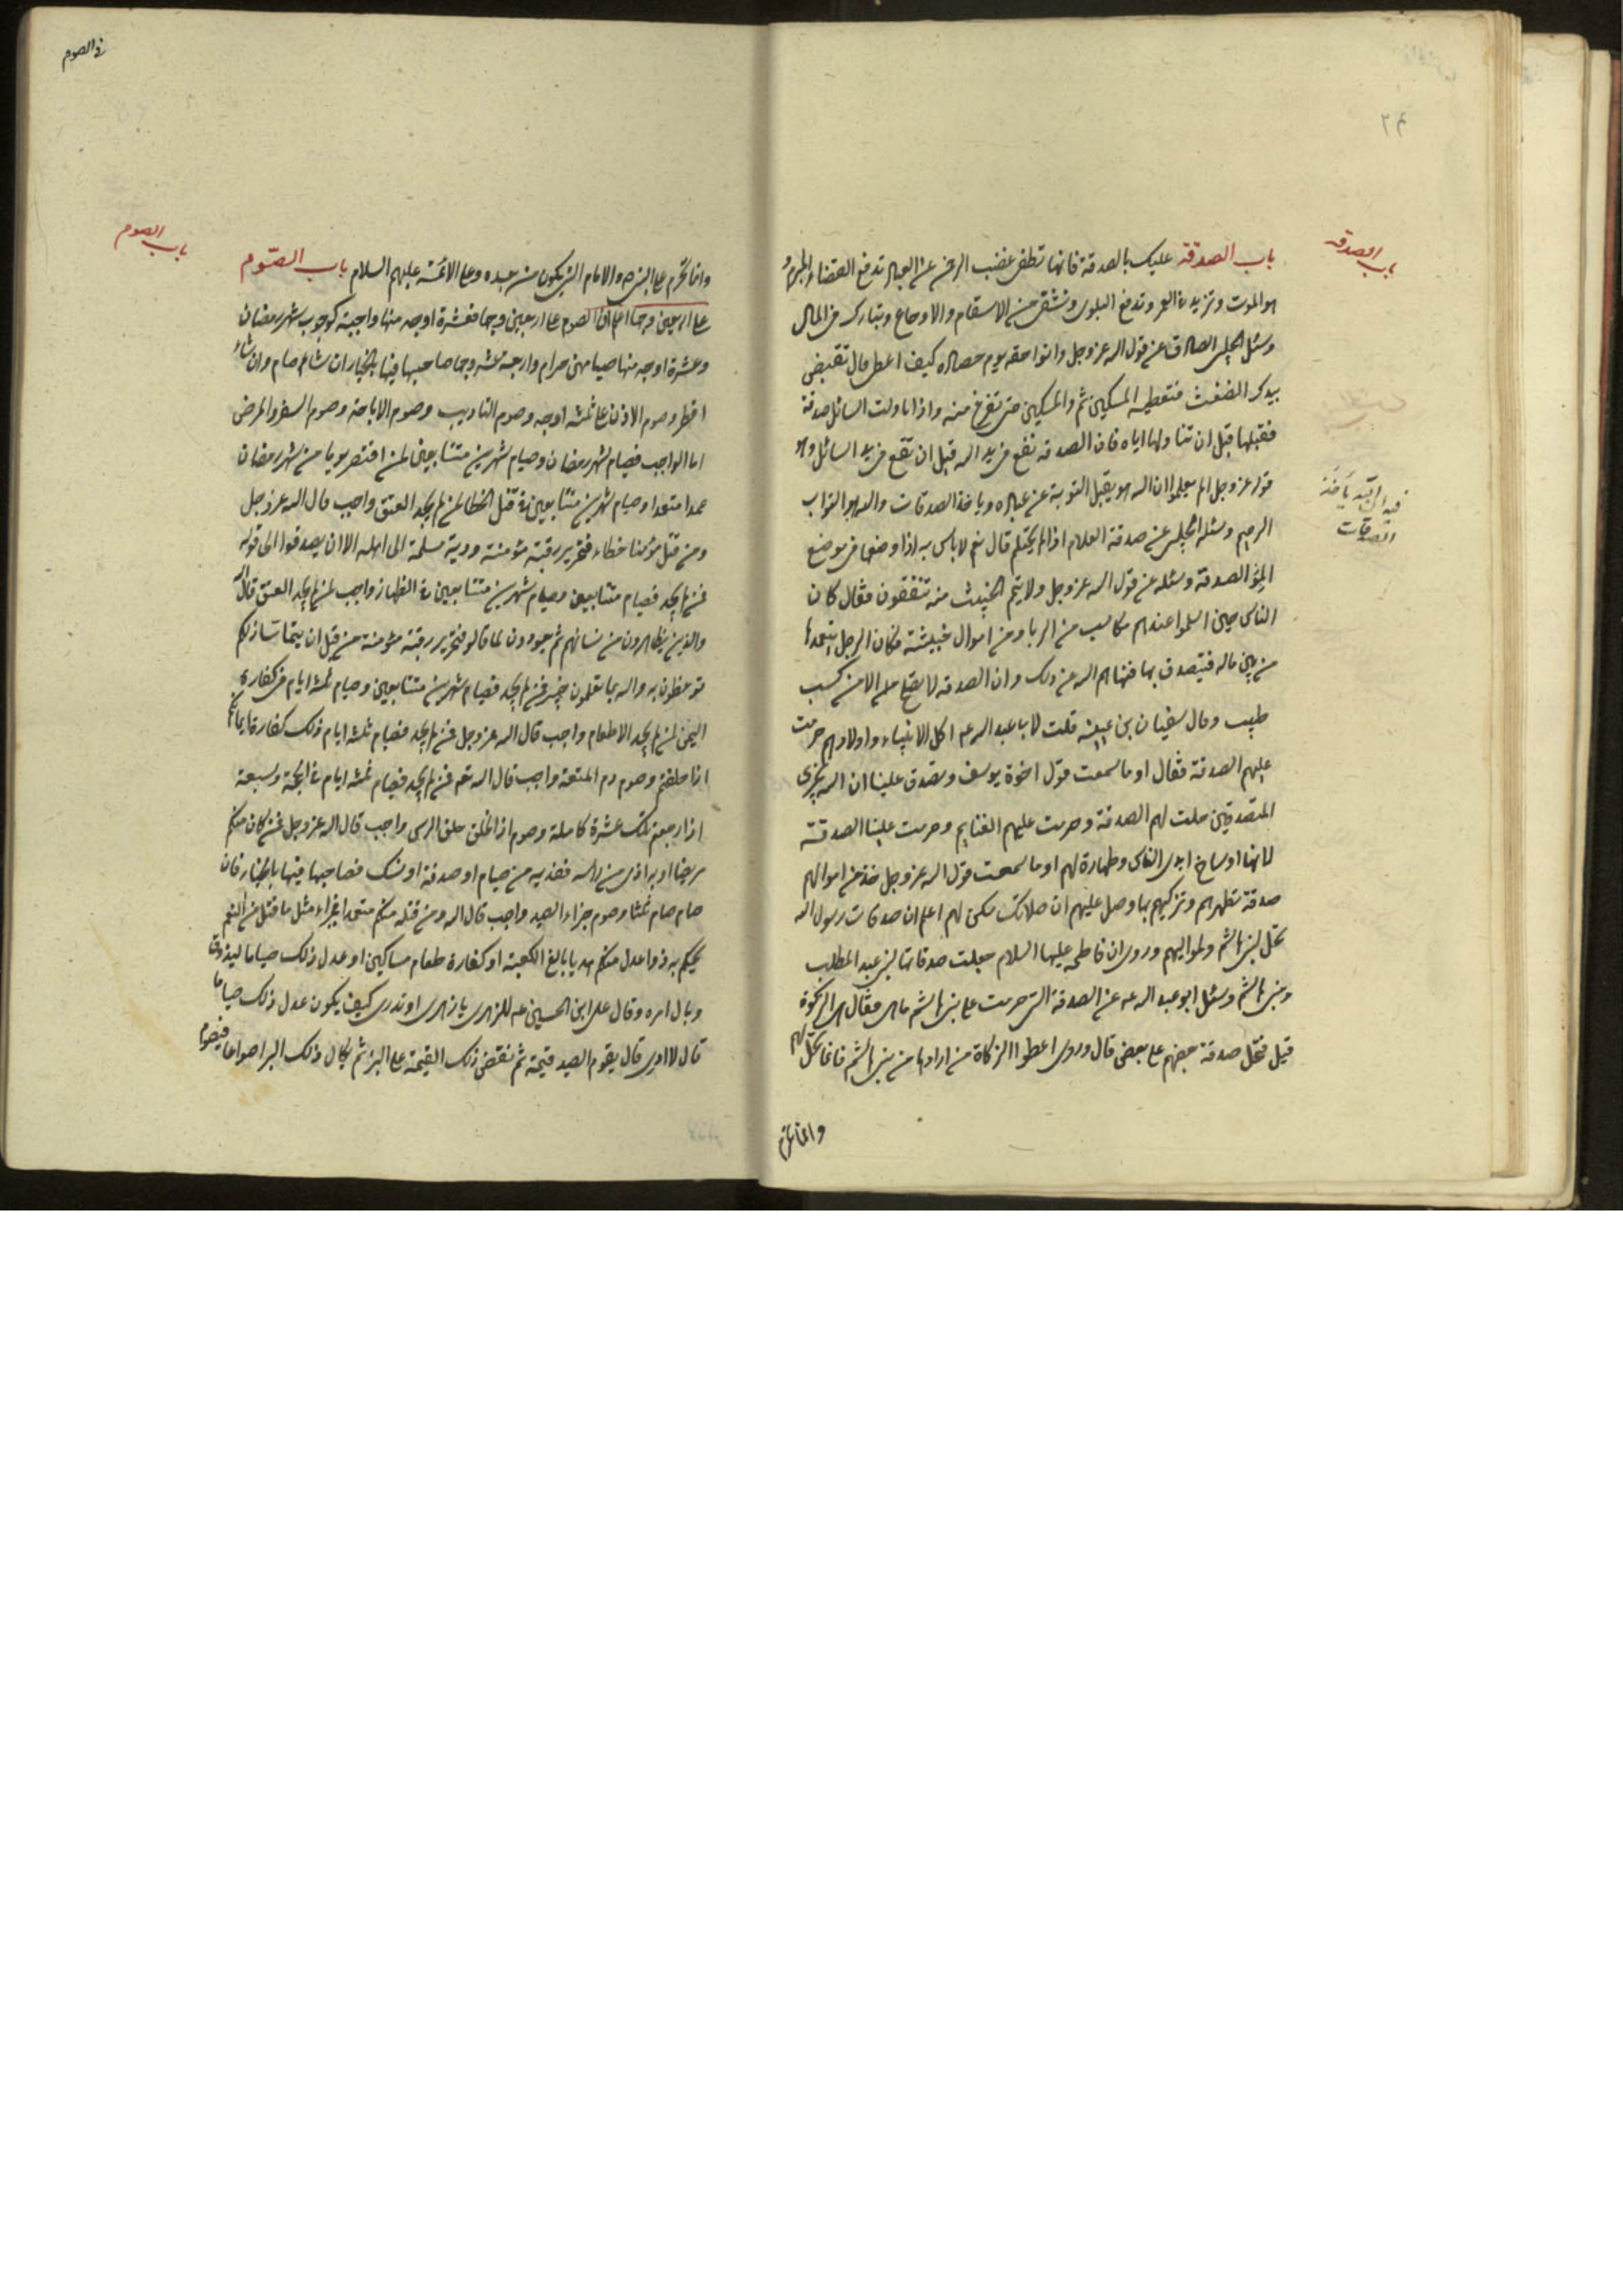 ۲۴
باب الصدقه
باب الصدقة عليك بالصدقة فانها تطفى غضب الرحمن عن العباد تدفع القضاء المبرم و
هو الموت وتزيد فى العمر وتدفع البلوى وتشفى من الاسقام والاوجاع وتبارك فى المال
وسئل الحلبى الصادق عن قول الله عز وجل واتوا حقه يوم حصاده كيف اعطى قال تقبض
بيدك الضغث فتعطيه المسكين ثم والمسكين حتى تفرغ منه واذا ناولت السائل صدقة
فقبلها قبل ان تناولها اياه فان الصدقة تقع فى يد الله قبل ان تقع فى يد السائل وهو
قوله عز وجل الم يعلموا ان الله هو يقبل التوبة عن عباده وياخذ الصدقات والله هو التواب
فيه ان الله يأخذ
الصدقات
الرحيم وسئله الحلبى عن صدقة الغلام اذا لم يحتلم قال نعم لا باس به اذا وضعها فى موضع
الصدقة وسئله عن قول الله عز وجل ولا تيمموا الخبيث منه تنفقون فقال كان
الناس حين اسلموا عندهم مكاسب من الربا ومن اموال خبيثة فكان الرجل يتعمدها
من بين ماله فيتصدق بها فنهاهم الله عن ذلك وان الصدقة لا تصلح الا من كسب
طيب وقال سفيان بن عيينه قلت لابى عبد الله ع اكل الانبياء واولادهم حرمت
عليهم الصدقة فقال او ما سمعت قول اخوة يوسف وتصدق علينا ان الله يجزى
المتصدقين حلت لهم الصدقة وحرمت عليهم الغنايم وحرمت علينا الصدقة
لانها اوساخ ايدى الناس وطهارة لهم او ما سمعت قول الله عز وجل خذ من اموالهم
صدقة تطهرهم وتزكيهم بها وصل عليهم ان صلاتك سكن لهم اعلم ان صدقات رسول الله
تحل لبنى هاشم ولمواليهم وروى ان فاطمه عليها السلام جعلت صدقاتها لبنى عبد المطلب
وبنى هاشم وسئل ابو عبد الله عه عن الصدقة التى حرمت على بنى هاشم ما هى فقال هى الزكوة
قيل فتحل صدقة بعضهم على بعض قال وروى اعطوا الزكاة من ارادها من بنى هاشم فانها تحل لهم
وانما تحرم
فى الصوم
باب الصوم
وانما تحرم على النبى ص والامام الذى يكون من بعده وعلى الائمة عليهم السلام باب الصّوم
على اربعين وجها اعلم ان الصوم على اربعين وجها فعشرة اوجه منها واجبة كوجوب شهر رمضان
وعشرة اوجه منها صيامهن حرام واربعة عشر وجها صاحبها فيها بالخيار ان شاء صام وان شاء
افطر وصوم الاذن على ثلثه اوجه وصوم التاديب وصوم الاباحة وصوم السفر والمرض
اما الواجب فصيام شهر رمضان وصيام شهرين متتابعين لمن افطر يوما من شهر رمضان
عمدا متعمدا وصيام شهرين متتابعين فى قتل الخطا لمن لم يجد العتق واجب قال الله عز وجل
ومن قتل مؤمنا خطاء فتحرير رقبة مؤمنة ودية مسلمة الى اهله الا ان يصدقوا الى قوله
فمن لم يجد فصيام متتابعين وصيام شهرين متتابعين فى الظهار واجب لمن لم يجد العتق قال الله
والذين يظاهرون من نسائهم ثم يعودون لما قالوا فتحرير رقبة مؤمنة من قبل ان يتماسا ذلكم
توعظون به والله بما تعملون خبير فمن لم يجد فصيام شهرين متتابعين وصيام ثلثه ايام فى كفارة
اليمين لمن لم يجد الاطعام واجب قال الله عز وجل فمن لم يجد فصيام ثلثه ايام ذلك كفارة ايمانكم
اذا حلفتم وصوم دم المتعة واجب قال الله تعه فمن لم يجد فصيام ثلثه ايام فى الحج وسبعة
اذا رجعتم تلك عشرة كاملة وصوم اذا الحلق حلق الراس واجب قال الله عز وجل فمن كان منكم
مريضا او به اذى من راسه ففديه من صيام او صدقة او نسك فصاحبها فيها بالخيار فان
صام صام ثلثا وصوم جزاء الصيد واجب قال الله ومن قتله منكم متعمدا فجزاء مثل ما قتل من النعم
يحكم به ذوا عدل منكم هديا بالغ الكعبة او كفارة طعام مساكين او عدل ذلك صياما ليذوق
وبال امره وقال على ابن الحسين عه للزهرى يا زهرى او تدرى كيف يكون عدل ذلك صياما
قال لا ادرى قال يقوم الصيد قيمة ثم تفض تلك القيمة على البر ثم يكال ذلك البر اصواعا فيصوم